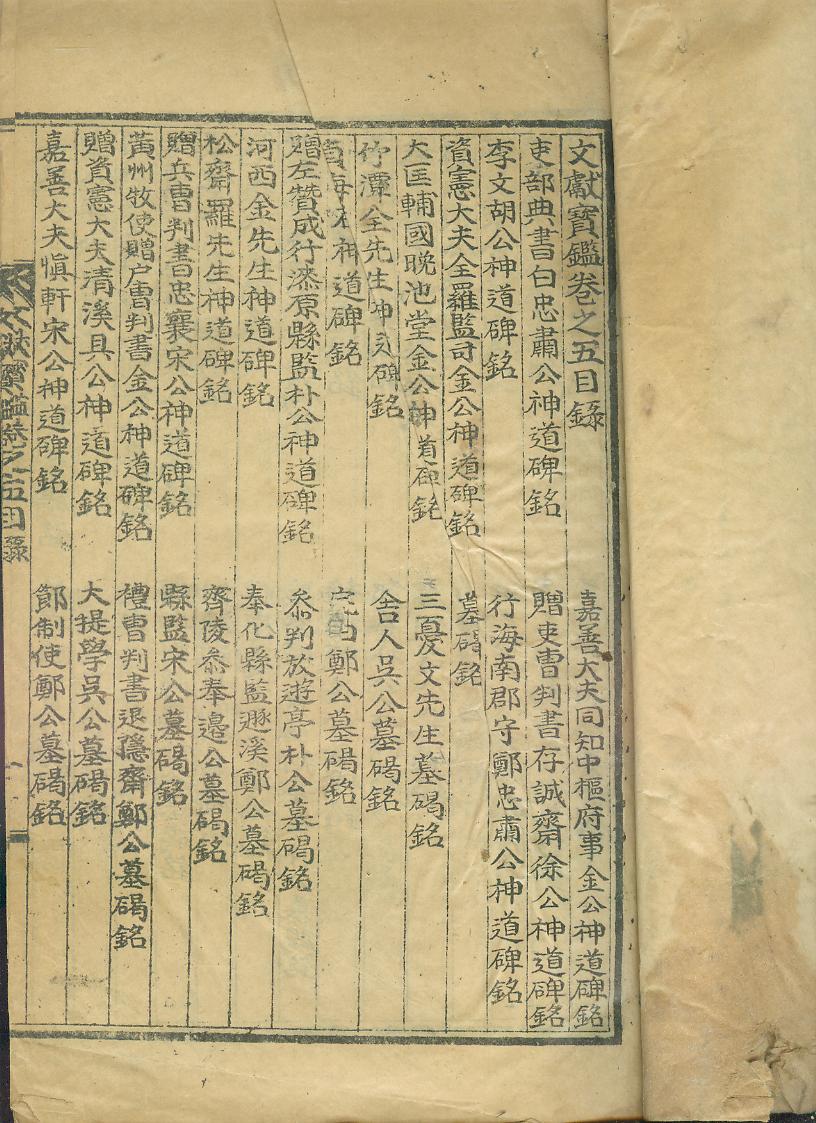 文獻寶鑑卷之五目錄 嘉善大夫同知中樞府事金公神道碑銘
吏部典書白忠肅公神道碑銘 贈吏曹判書存誠齋徐公神道碑銘
李文胡公神道碑銘 行海南郡守鄭忠肅公神道碑銘
資憲大夫全羅監司金公神道碑銘 墓碣銘
大匡輔國晩池堂金公神道碑銘 三憂文先生墓碣銘
竹潭全先生神道碑銘 舍人吳公墓碣銘
海神道碑銘 鄭公墓碣銘
贈左贊成行漆原縣監朴公神道碑銘 叅判放遊亭朴公墓碣銘
河西金先生神道碑銘 奉化縣監遯溪鄭公墓碣銘
松齋羅先生神道碑銘 齊陵叅奉邊公墓碣銘
贈兵曹判書忠襄宋公神道碑銘 縣監宋公墓碣銘
黃州牧使贈户曹判書金公神道碑銘 禮曹判書退隱齋鄭公墓碣銘
贈資憲大夫清溪具公神道碑銘 大提學吳公墓碣銘
嘉善大夫愼軒宋公神道碑銘 節制使鄭公墓碣銘
文獻寶鑑卷之五目錄 一